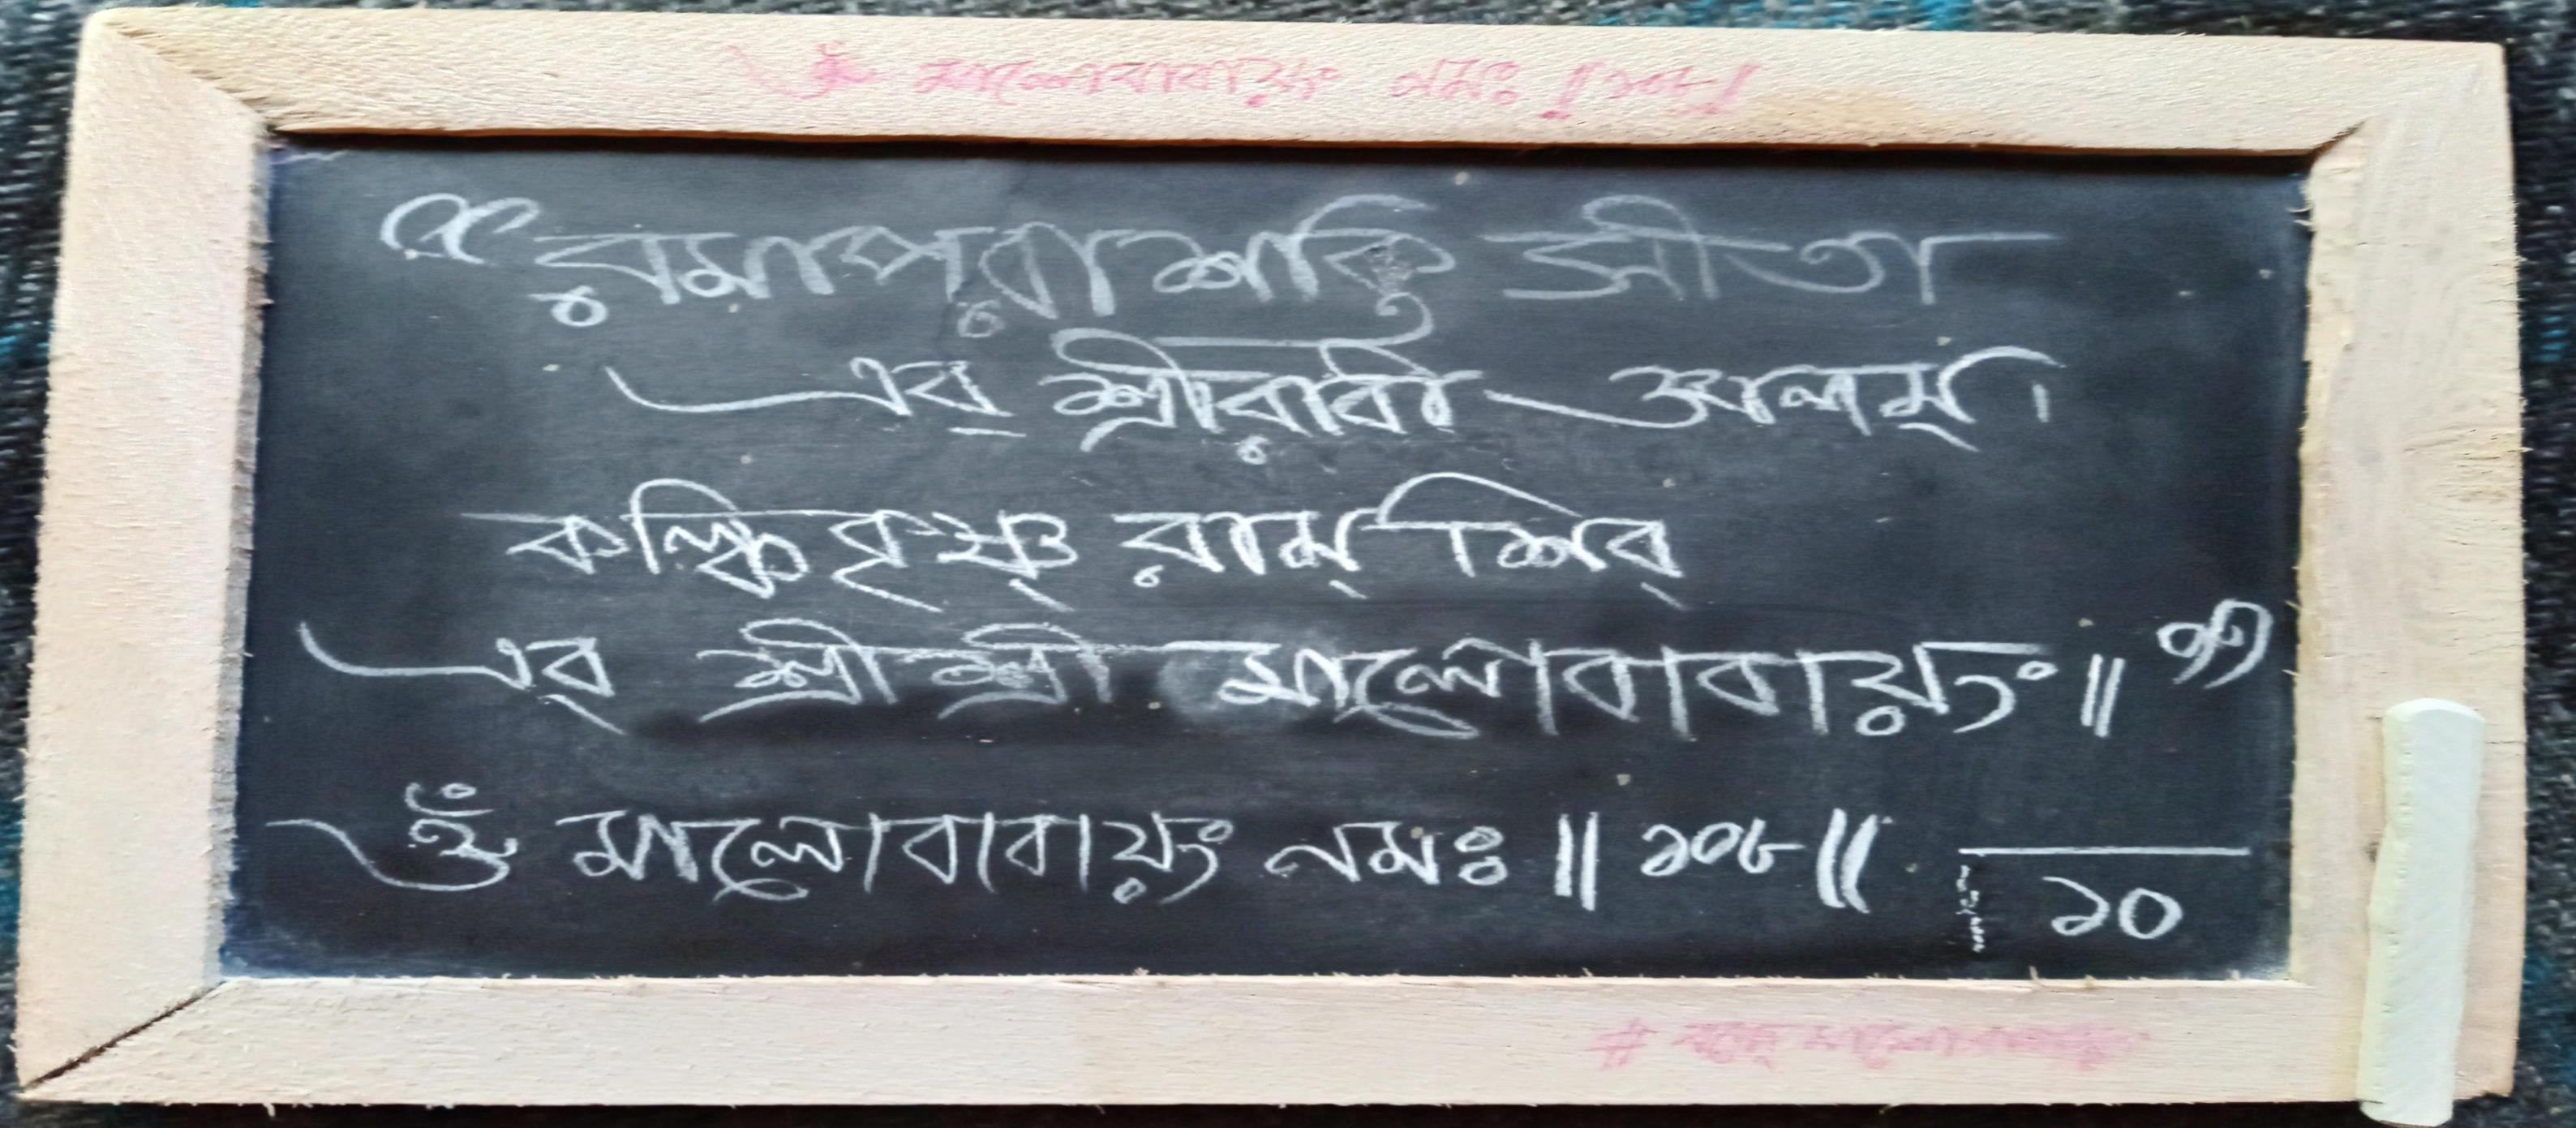 ওঁ মালোবাবায়ং নমঃ ॥১০৮॥
“রমাপরাশক্তি সীতা
এব্ শ্রীরাবী অালম্।
কল্কি কৃষ্ণ্ রাম্ শিব্
এব্ শ্রীশ্রী মালোবাবায়ং॥”
ওঁ মালোবাবায়ং নমঃ ॥১০৮॥
১০
#